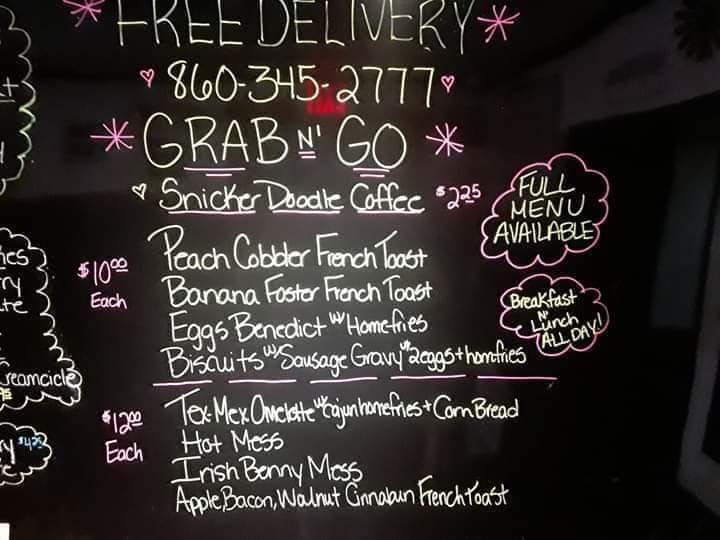 FREE DELIVERY
860-345-2777
GRAB N' GO
Snicker Doodle Coffee $2.25
FULL
MENU
AVAILABLE
$10.00
Each
Peach Cobbler French Toast
Banana Foster French Toast
Eggs Benedict w/ Homefries
Biscuits w/ Sausage Gravy w/ 2eggs + homfries
Breakfast
N'
Lunch
ALL DAY!
$12.00
Each
Tex-Mex Omelette w/ Cajun homefries + Corn Bread
Hot Mess
Irish Benny Mess
Apple, Bacon, Walnut Cinnabun French Toast
reamcicle